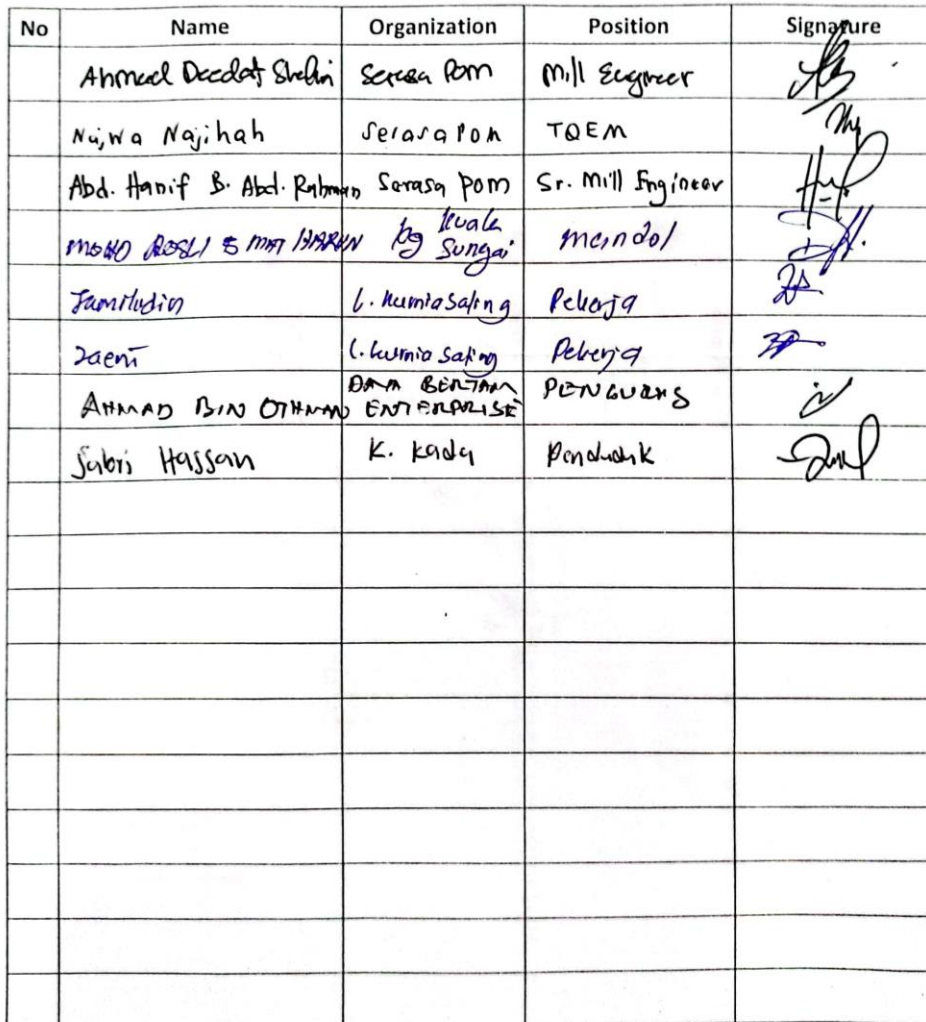 No Name Organization Position Signature
Ahmad Deedat Serasa Pom Mill Engineer
Najwa Najihah Serasa Pom TQEM
Abd. Hanif B. Abd. Rahman Serasa Pom Sr. Mill Engineer
MOHD ROSLI B MAT HARUN kg kuala sungai mandol
Jamiludin l. kurnia saling Pekerja
Zaeni l. kurnia saling Pekerja
AHMAD BIN OTHMAN DANA BERTAM ENTERPRISE PENGURUS
Sabri Hassan K. Kada Penduduk